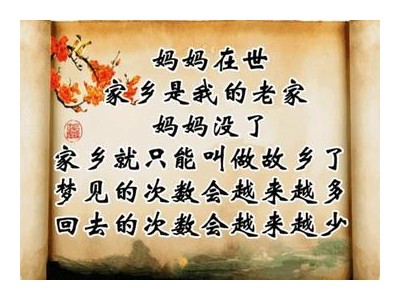 妈妈在世
家乡是我的老家
妈妈没了
家乡就只能叫做故乡了
梦见的次数会越来越多
回去的次数会越来越少